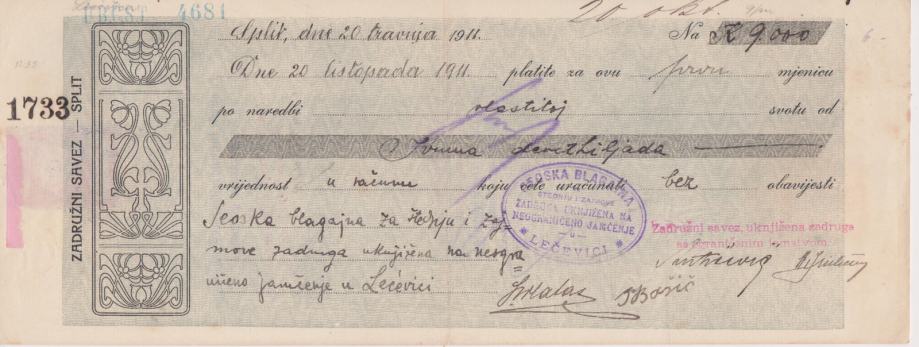 4681
20 okt.
Split, dne 20 travnja 1911. Na K 9000
Dne 20 listopada 1911. platite za ovu prvu mjenicu
1733
po naredbi vlastitoj svotu od
Kruna devethiljada
vrijednost u računu koju ćete uračunati bez obavijesti
Seoska blagajna za štednju i zaj-
move zadruga uknjižena na neogra
ničeno jamčenje u Lećevici
SEOSKA BLAGAJNA
ŠTEDNJU I ZAJMOVE
ZADRUGA UKNJIŽENA NA
NEOGRANIČENO JAMČENJE
U
LEĆEVICI
Zadružni savez, uknjižena zadruga
sa ograničenim jamstvom.
ZADRUŽNI SAVEZ — SPLIT